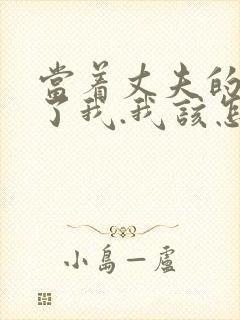 當着丈夫的
了我.我該怎
小島一盧